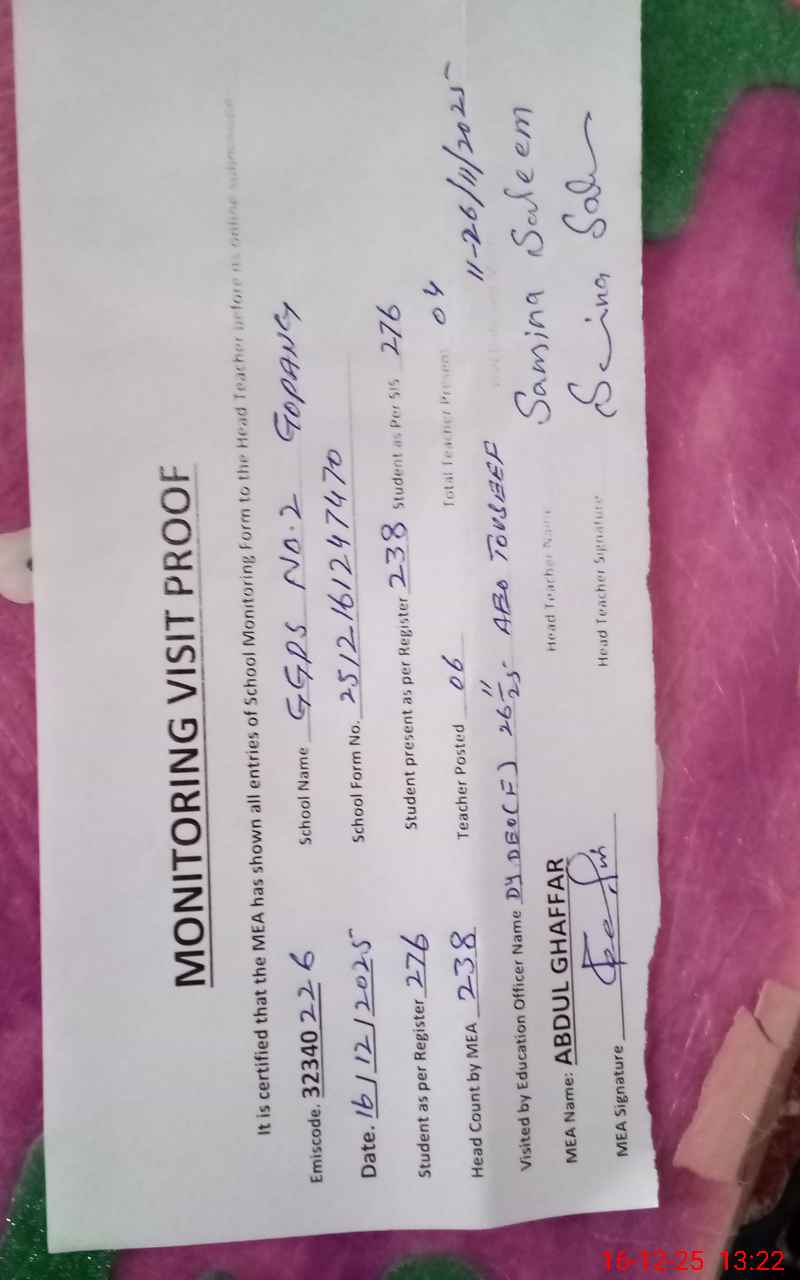 MONITORING VISIT PROOF
It is certified that the MEA has shown all entries of School Monitoring Form to the Head Teacher before its online submission
Emiscode. 32340226 School Name GGPS No.2 GOPANG
Date. 16/12/2025 School Form No. 2512161247470
Student as per Register 276 Student present as per Register 238 Student as Per SIS 276
Head Count by MEA 238 Teacher Posted 06 Total Teacher Present 04
Visited by Education Officer Name DY DEO(F) 26 11 25 AEO TOUSEEF 11-26/11/2025
MEA Name: ABDUL GHAFFAR Head Teacher Name Samina Saleem
MEA Signature Head Teacher Signature
16-12-25 13:22